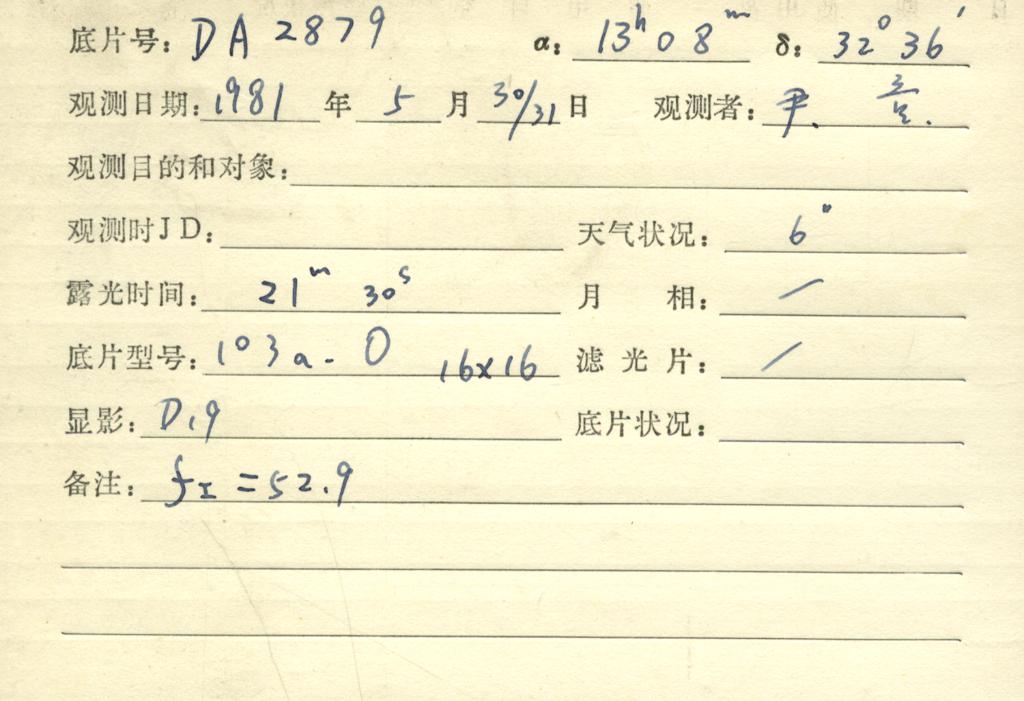 底片号: DA 2879 α: 13ʰ 08ᵐ δ: 32° 36′
观测日期: 1981 年 5 月 30/31 日 观测者: 尹.
观测目的和对象:
观测时JD: 天气状况: 6"
露光时间: 21ᵐ 30ˢ 月 相: /
底片型号: 103a-O 16x16 滤光片: /
显影: D19 底片状况:
备注: fɪ = 52.9